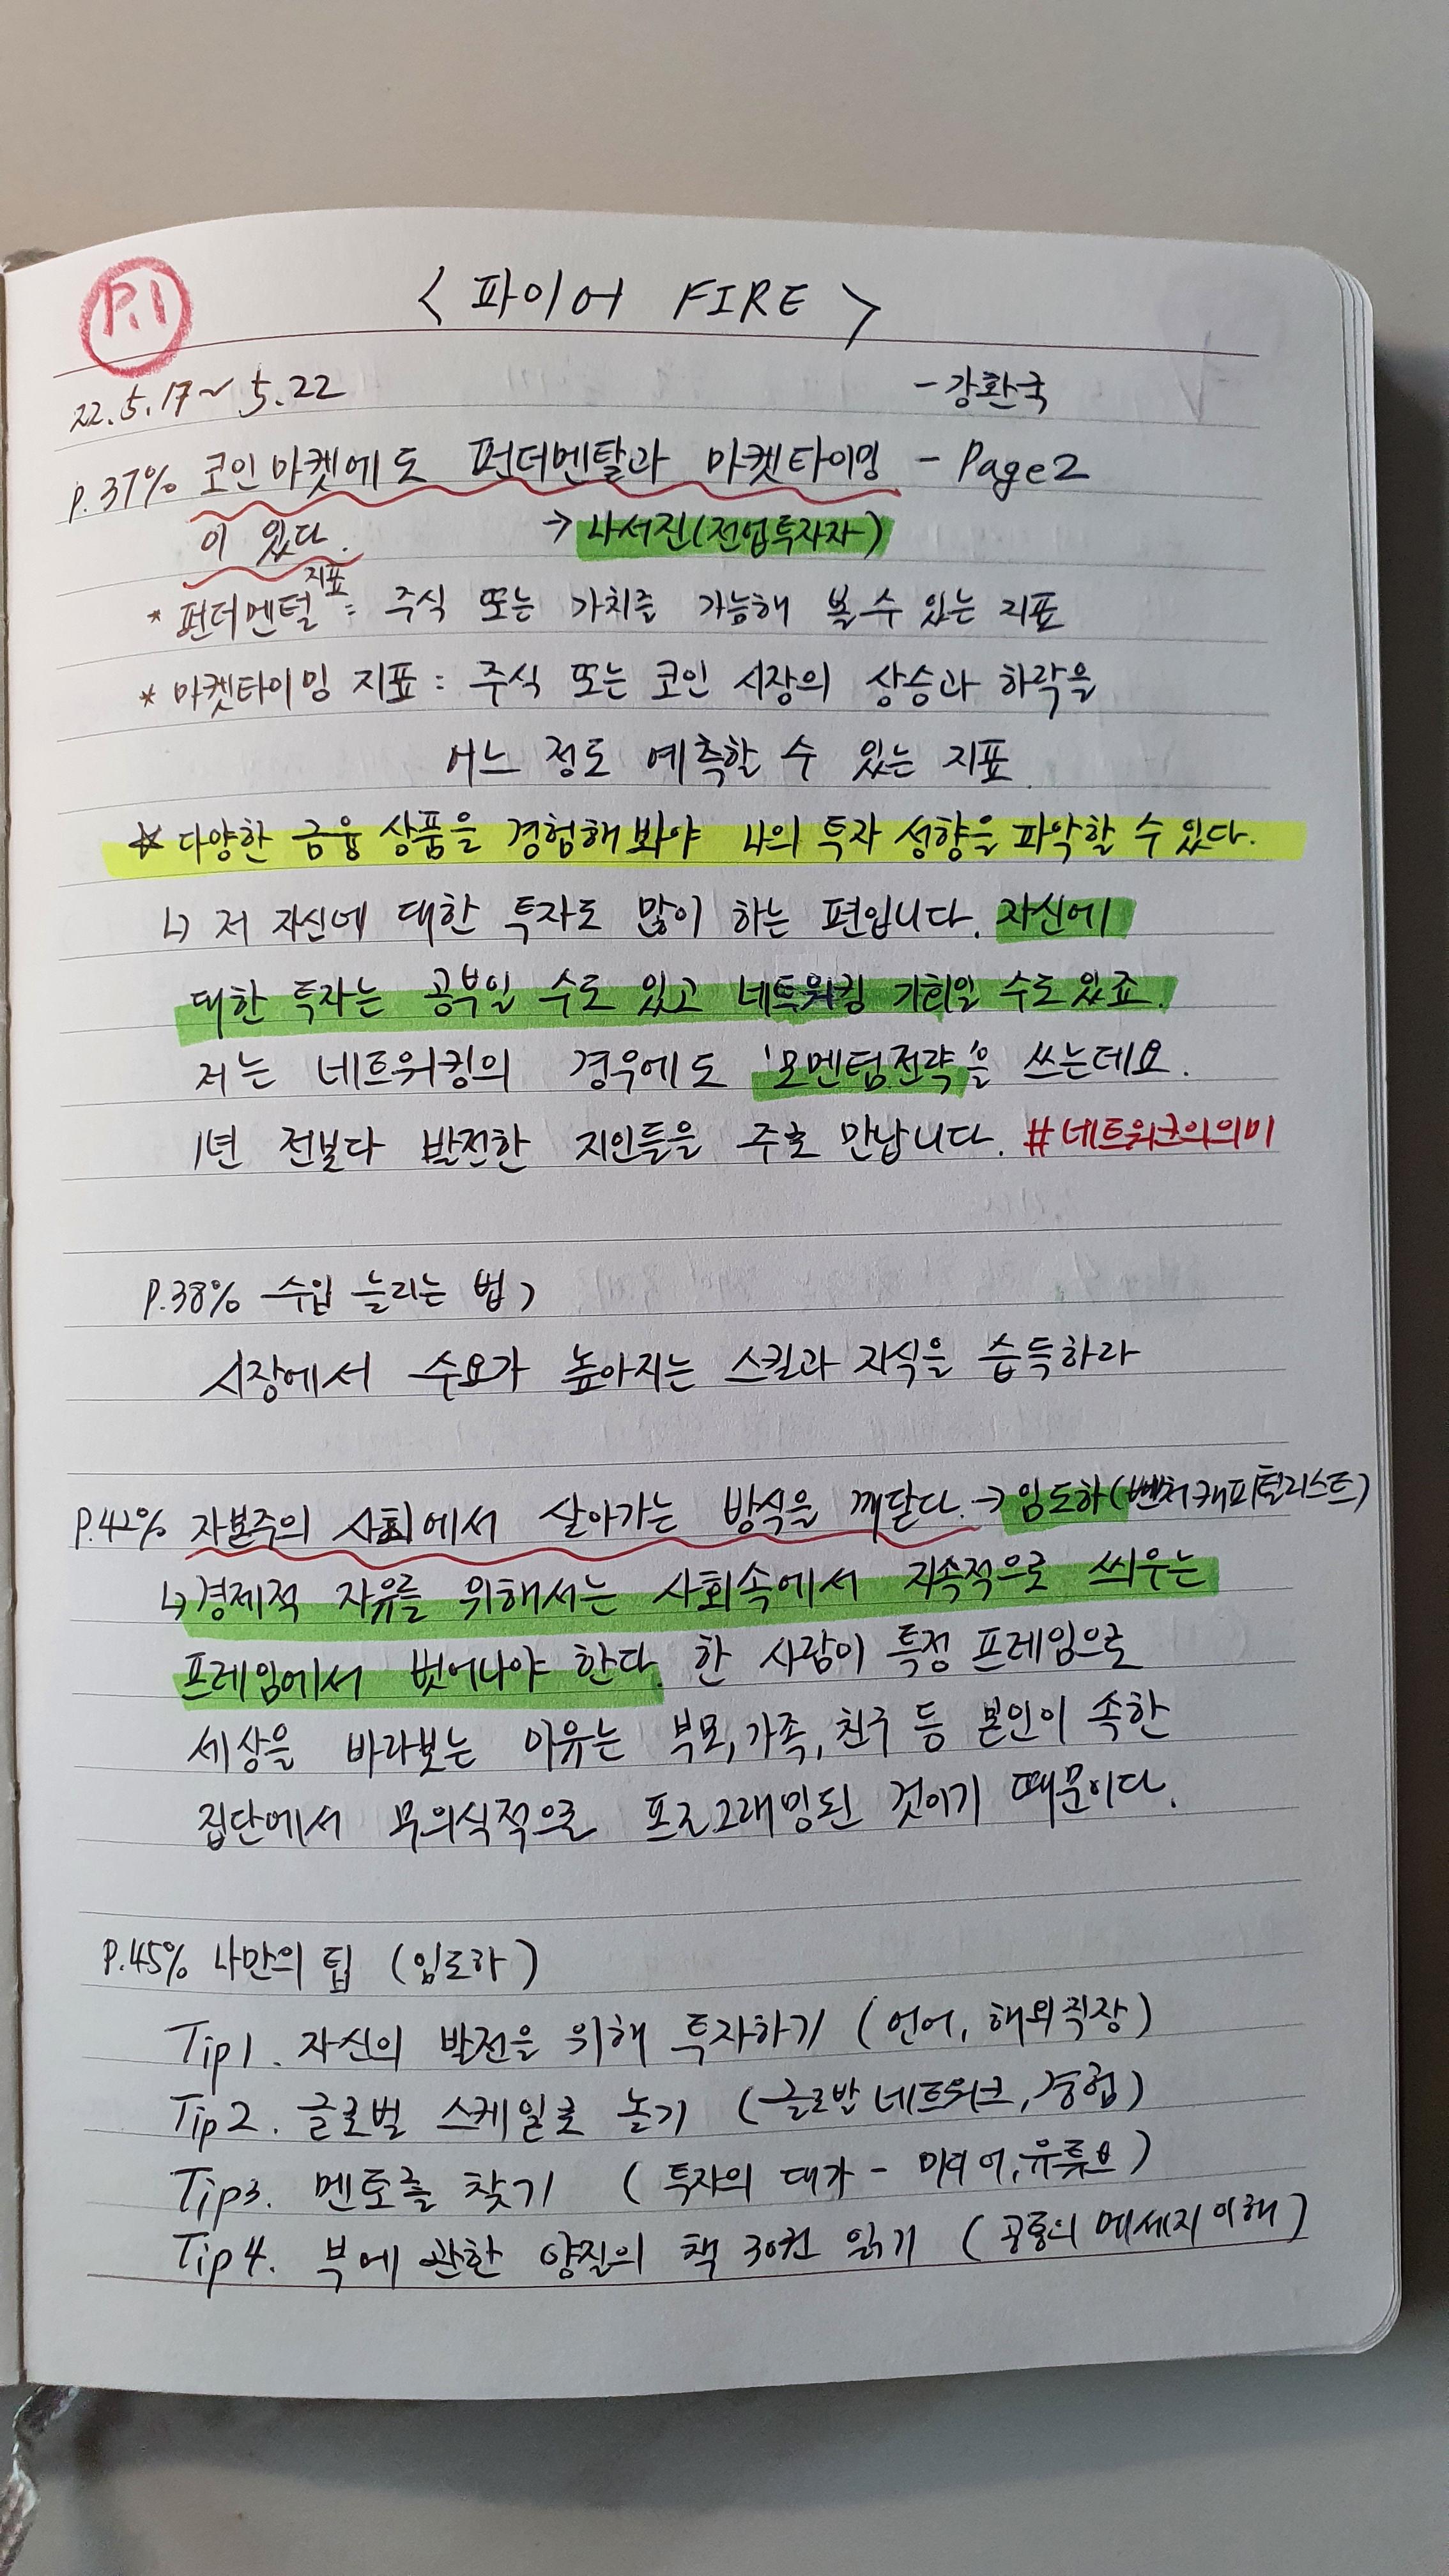 P.1
< 파이어 FIRE >
22.5.17~5.22
-강환국
P.37% 코인마켓에도 펀더멘탈과 마켓타이밍 - Page2
이 있다. → 나서진(전업투자자)
* 펀더멘털 지표 : 주식 또는 가치를 가늠해 볼 수 있는 지표
* 마켓타이밍 지표 : 주식 또는 코인 시장의 상승과 하락을
어느 정도 예측할 수 있는 지표.
☆ 다양한 금융 상품을 경험해봐야 나의 투자 성향을 파악할 수 있다.
↳ 저 자신에 대한 투자도 많이 하는 편입니다. 자신에
대한 투자는 공부일 수도 있고 네트워킹 기회일 수도 있죠.
저는 네트워킹의 경우에도 '모멘텀전략'을 쓰는데요.
1년 전보다 발전한 지인들을 주로 만납니다. #네트워크의의미
P.38% 수입 늘리는 법>
시장에서 수요가 높아지는 스킬과 지식을 습득하라
P.42% 자본주의 사회에서 살아가는 방식을 깨닫다. → 임도하(벤처캐피털리스트)
↳ 경제적 자유를 위해서는 사회속에서 지속적으로 씌우는
프레임에서 벗어나야 한다. 한 사람이 특정 프레임으로
세상을 바라보는 이유는 부모, 가족, 친구 등 본인이 속한
집단에서 무의식적으로 프로그래밍된 것이기 때문이다.
P.45% 나만의 팁 (임도하)
Tip1. 자신의 발전을 위해 투자하기 (언어, 해외직장)
Tip2. 글로벌 스케일로 놀기 (글로발 네트워크, 경험)
Tip3. 멘토를 찾기 (투자의 대가 - 미디어, 유튜브)
Tip4. 부에 관한 양질의 책 30권 읽기 (공통의 메세지 이해)